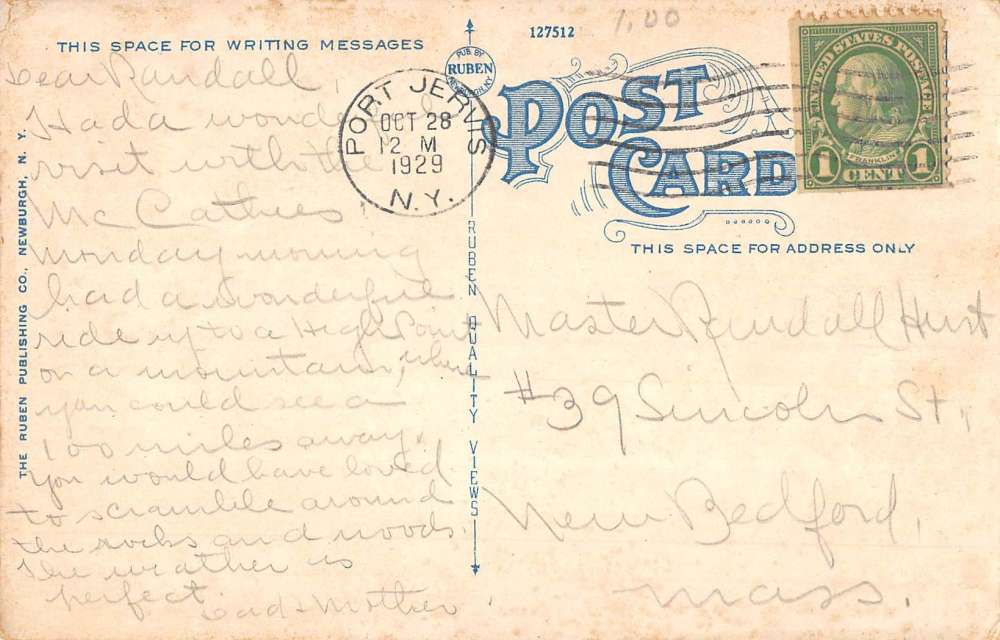 THIS SPACE FOR WRITING MESSAGES
Dear Randall,
Had a wonderful
visit with the
Mc Cathies
Monday morning
had a wonderful
ride up to a High Point
on a mountain, where
you could see a
100 miles away.
You would have loved
to scramble around
the rocks and woods.
The weather is
perfect.
Dad & Mother
THE RUBEN PUBLISHING CO., NEWBURGH, N. Y.
PUB. BY
RUBEN
NEWBURGH, N.Y.
RUBEN QUALITY VIEWS
PORT JERVIS
OCT 28
12 M
1929
N.Y.
127512
1.00
POST
CARD
UNITED STATES POSTAGE
FRANKLIN
1 CENT 1
THIS SPACE FOR ADDRESS ONLY
Master Randall Hurst
#39 Lincoln St.,
New Bedford,
Mass.